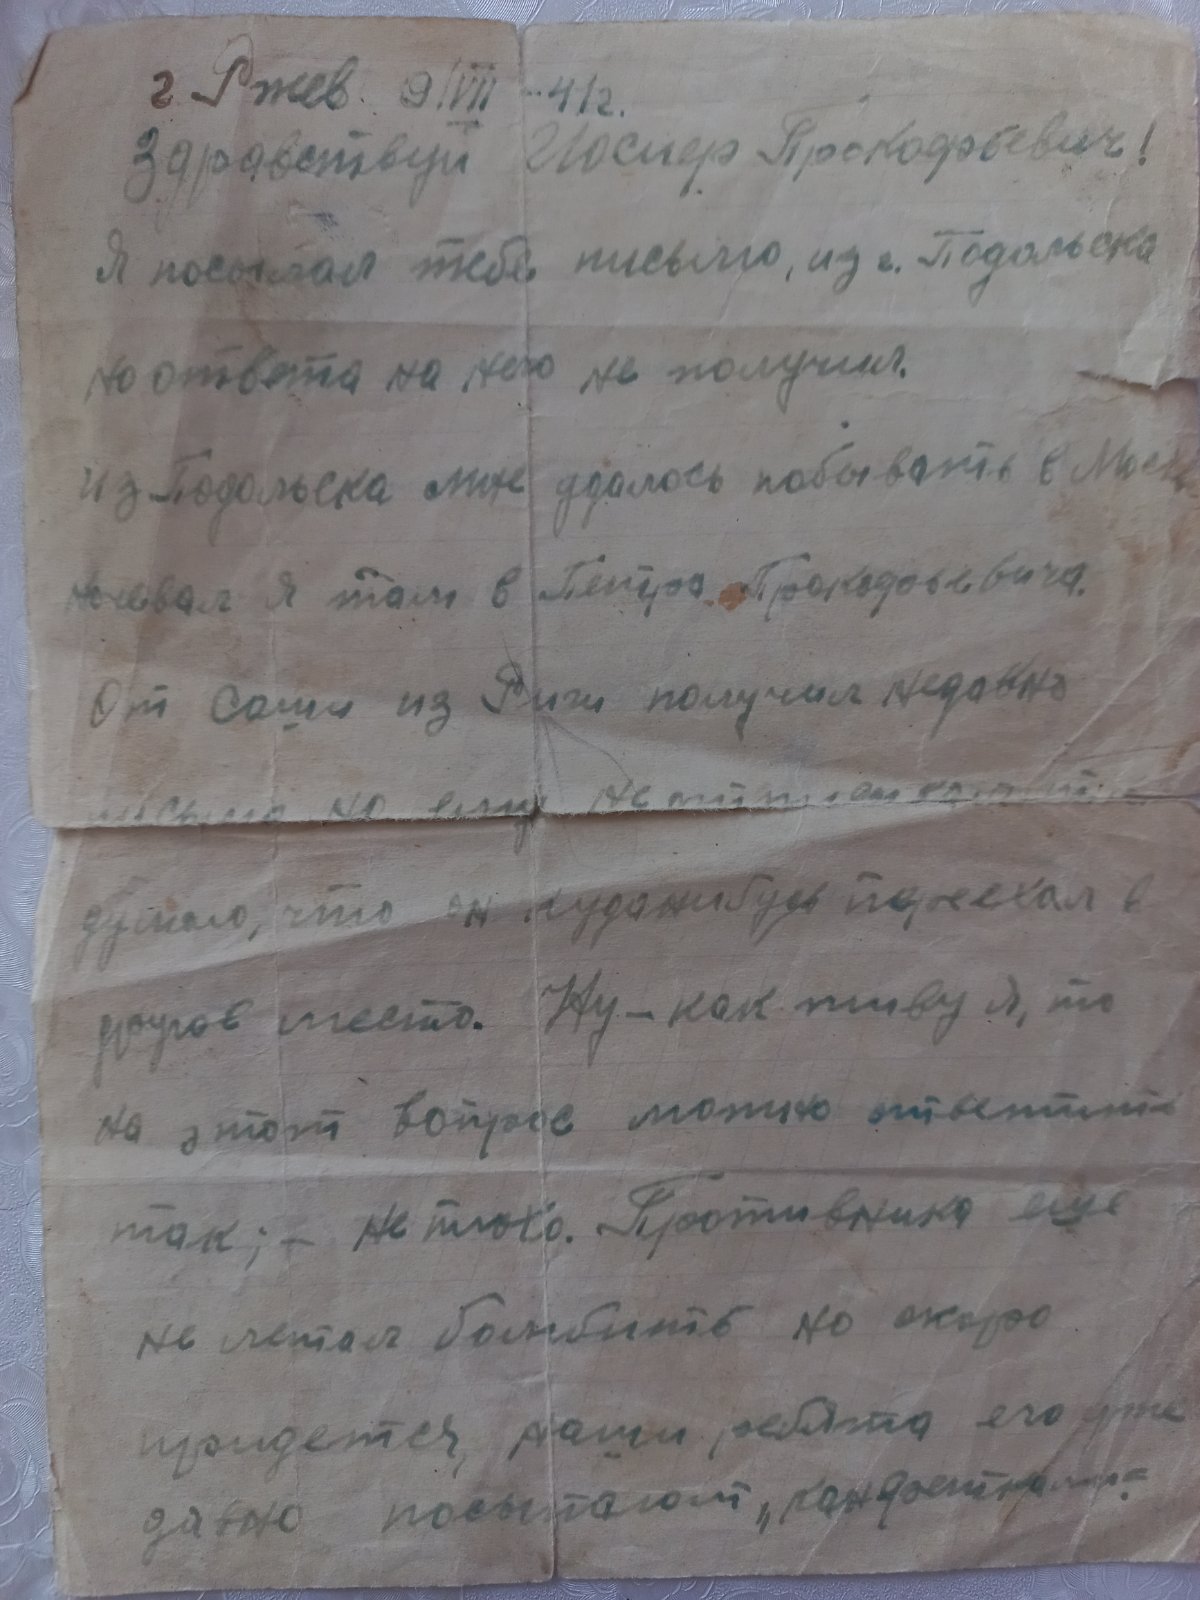 г. Ржев. 9/VII-41г.
Здравствуй Иосиф Прокофьевич!
Я посылал тебе письмо, из г. Подольска
но ответа на него не получил.
из Подольска мне удалось побывать в
ночевал я там в Петра Прокофьевича.
От Саши из Риги получил недавно
письмо но ему не
думаю, что он куданибудь переехал в
другое место. Ну - как живу я, то
на этот вопрос можно ответить
так; - не плохо. Противника еще
не летал бомбить но скоро
придется, наши ребята его уже
давно посыпают „конфетками"